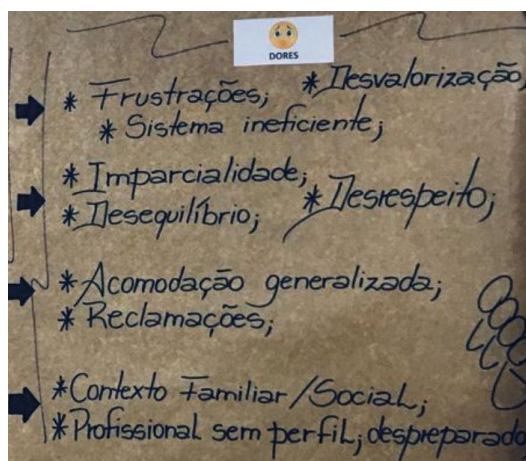 DORES
* Frustrações; * Desvalorização
* Sistema ineficiente;
* Imparcialidade;
* Desequilíbrio; * Desrespeito;
* Acomodação generalizada;
* Reclamações;
* Contexto Familiar/Social;
* Profissional sem perfil; despreparado